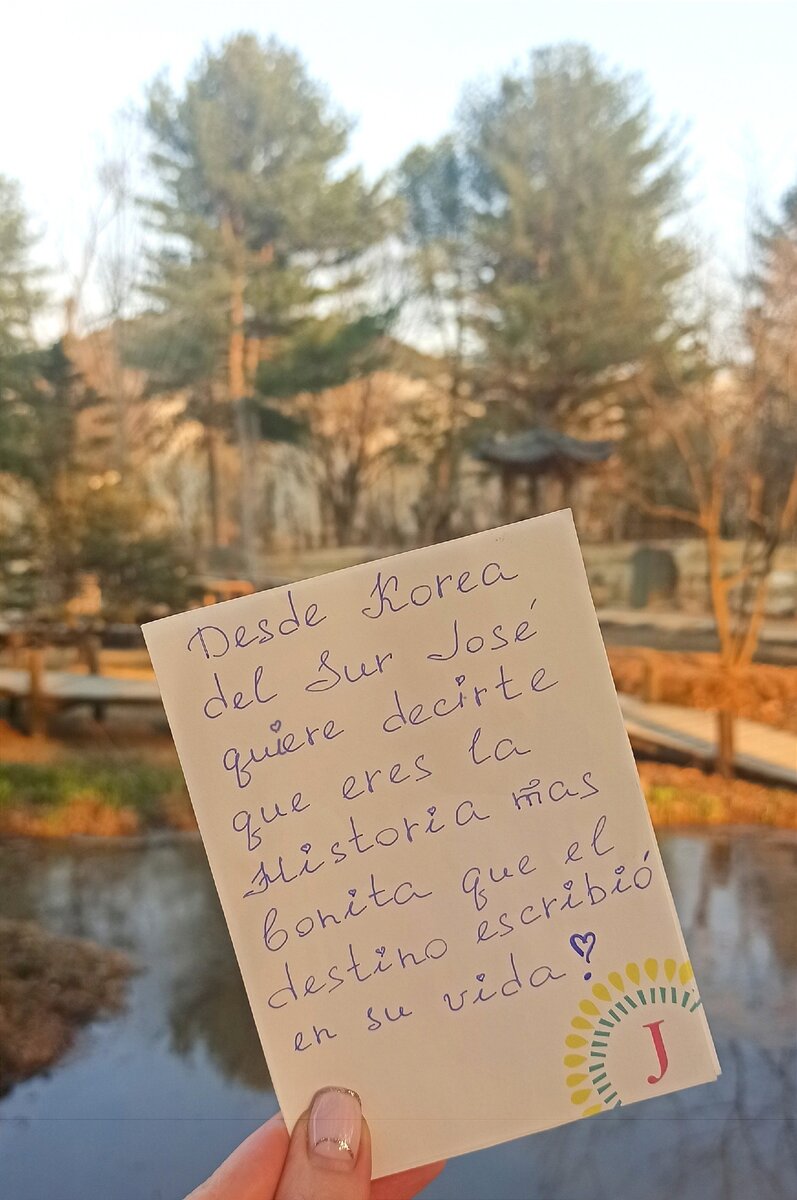 Desde Korea
del Sur José
quiere decirte
que eres la
Historia mas
bonita que el
destino escribió
en su vida
J